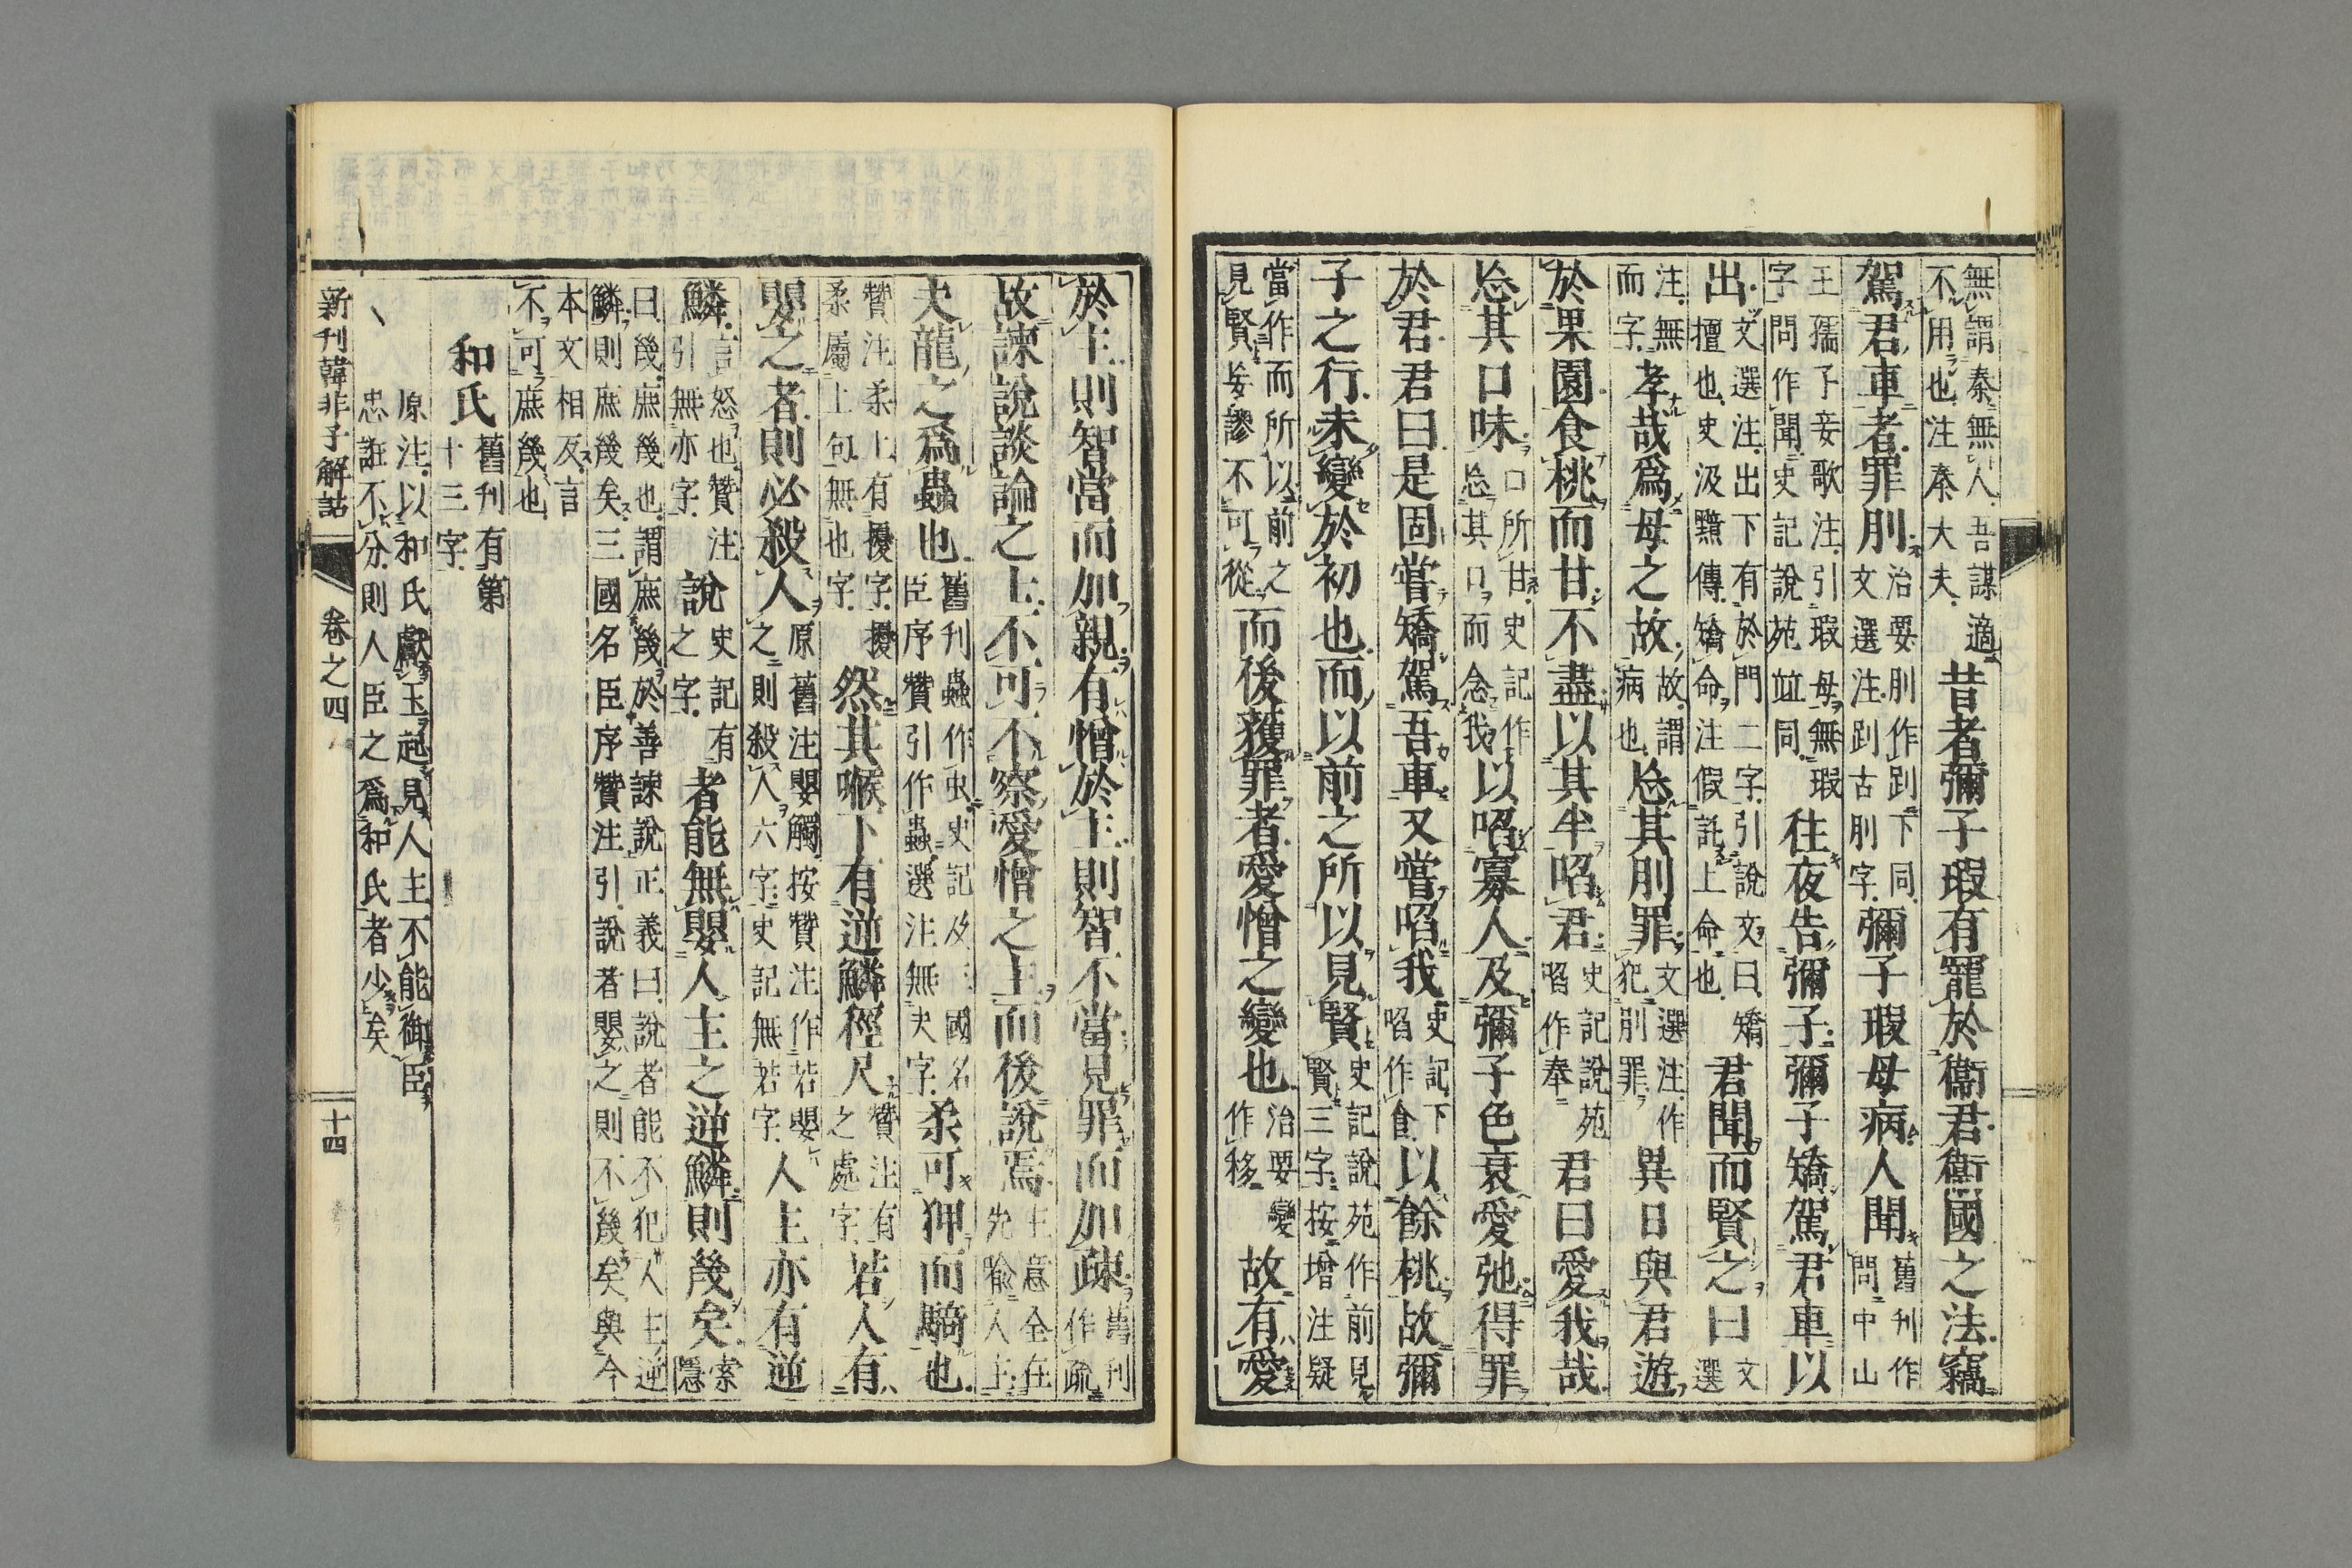 無謂秦無人吾謀適不用也注秦大夫昔者彌子瑕有寵於衞君衞國之法竊
駕君車者罪刖治要刖作跀下同文選注跀古刖字彌子瑕母病人聞舊刊作問中山
王孺子妾歌注引瑕母無瑕字問作聞史記說苑竝同往夜告彌子彌子矯駕君車以
出文選注出下有於門二字引說文曰矯擅也史汲黯傳矯命注假託上命也君聞而賢之曰文選
注無而字孝哉爲母之故故謂病也忘其刖罪文選注作犯刖罪異日與君遊
於果園食桃而甘不盡以其半啗君史記說苑啗作奉君曰愛我哉
忘其口味口所甘史記作忘其口而念我以啗寡人及彌子色衰愛弛得罪
於君君曰是固嘗矯駕吾車又嘗啗我史記下啗作食以餘桃故彌
子之行未變於初也而以前之所以見賢史記說苑作前見賢三字按增注疑
當作而所以前之見賢妄謬不可從而後獲罪者愛憎之變也治要變作移故有愛
於主則智當而加親有憎於主則智不當見罪而加疎舊刊作疏
故諫說談論之士不可不察愛憎之主而後說焉主意全在先喩人主
夫龍之爲蟲也舊刊蟲作虫史記及三國名臣序贊引作蟲選注無夫字柔可狎而騎也
贊注柔上有擾字擾柔屬上句無也字然其喉下有逆鱗徑尺贊注有之處字若人有
嬰之者則必殺人原舊注嬰觸按贊注作若嬰之則殺人六字史記無若字人主亦有逆
鱗言怒也贊注引無亦字說史記有之字者能無嬰人主之逆鱗則幾矣索隱
曰幾庶幾也謂庶幾於善諫說正義曰說者能不犯人主逆鱗則庶幾矣三國名臣序贊注引說者嬰之則不幾矣與今
本文相反言不可庶幾也
和氏舊刊有第十三字
原注以和氏獻玉起見人主不能御臣忠誑不分則人臣之爲和氏者少矣
新刊韓非子解詁 卷之四 十四